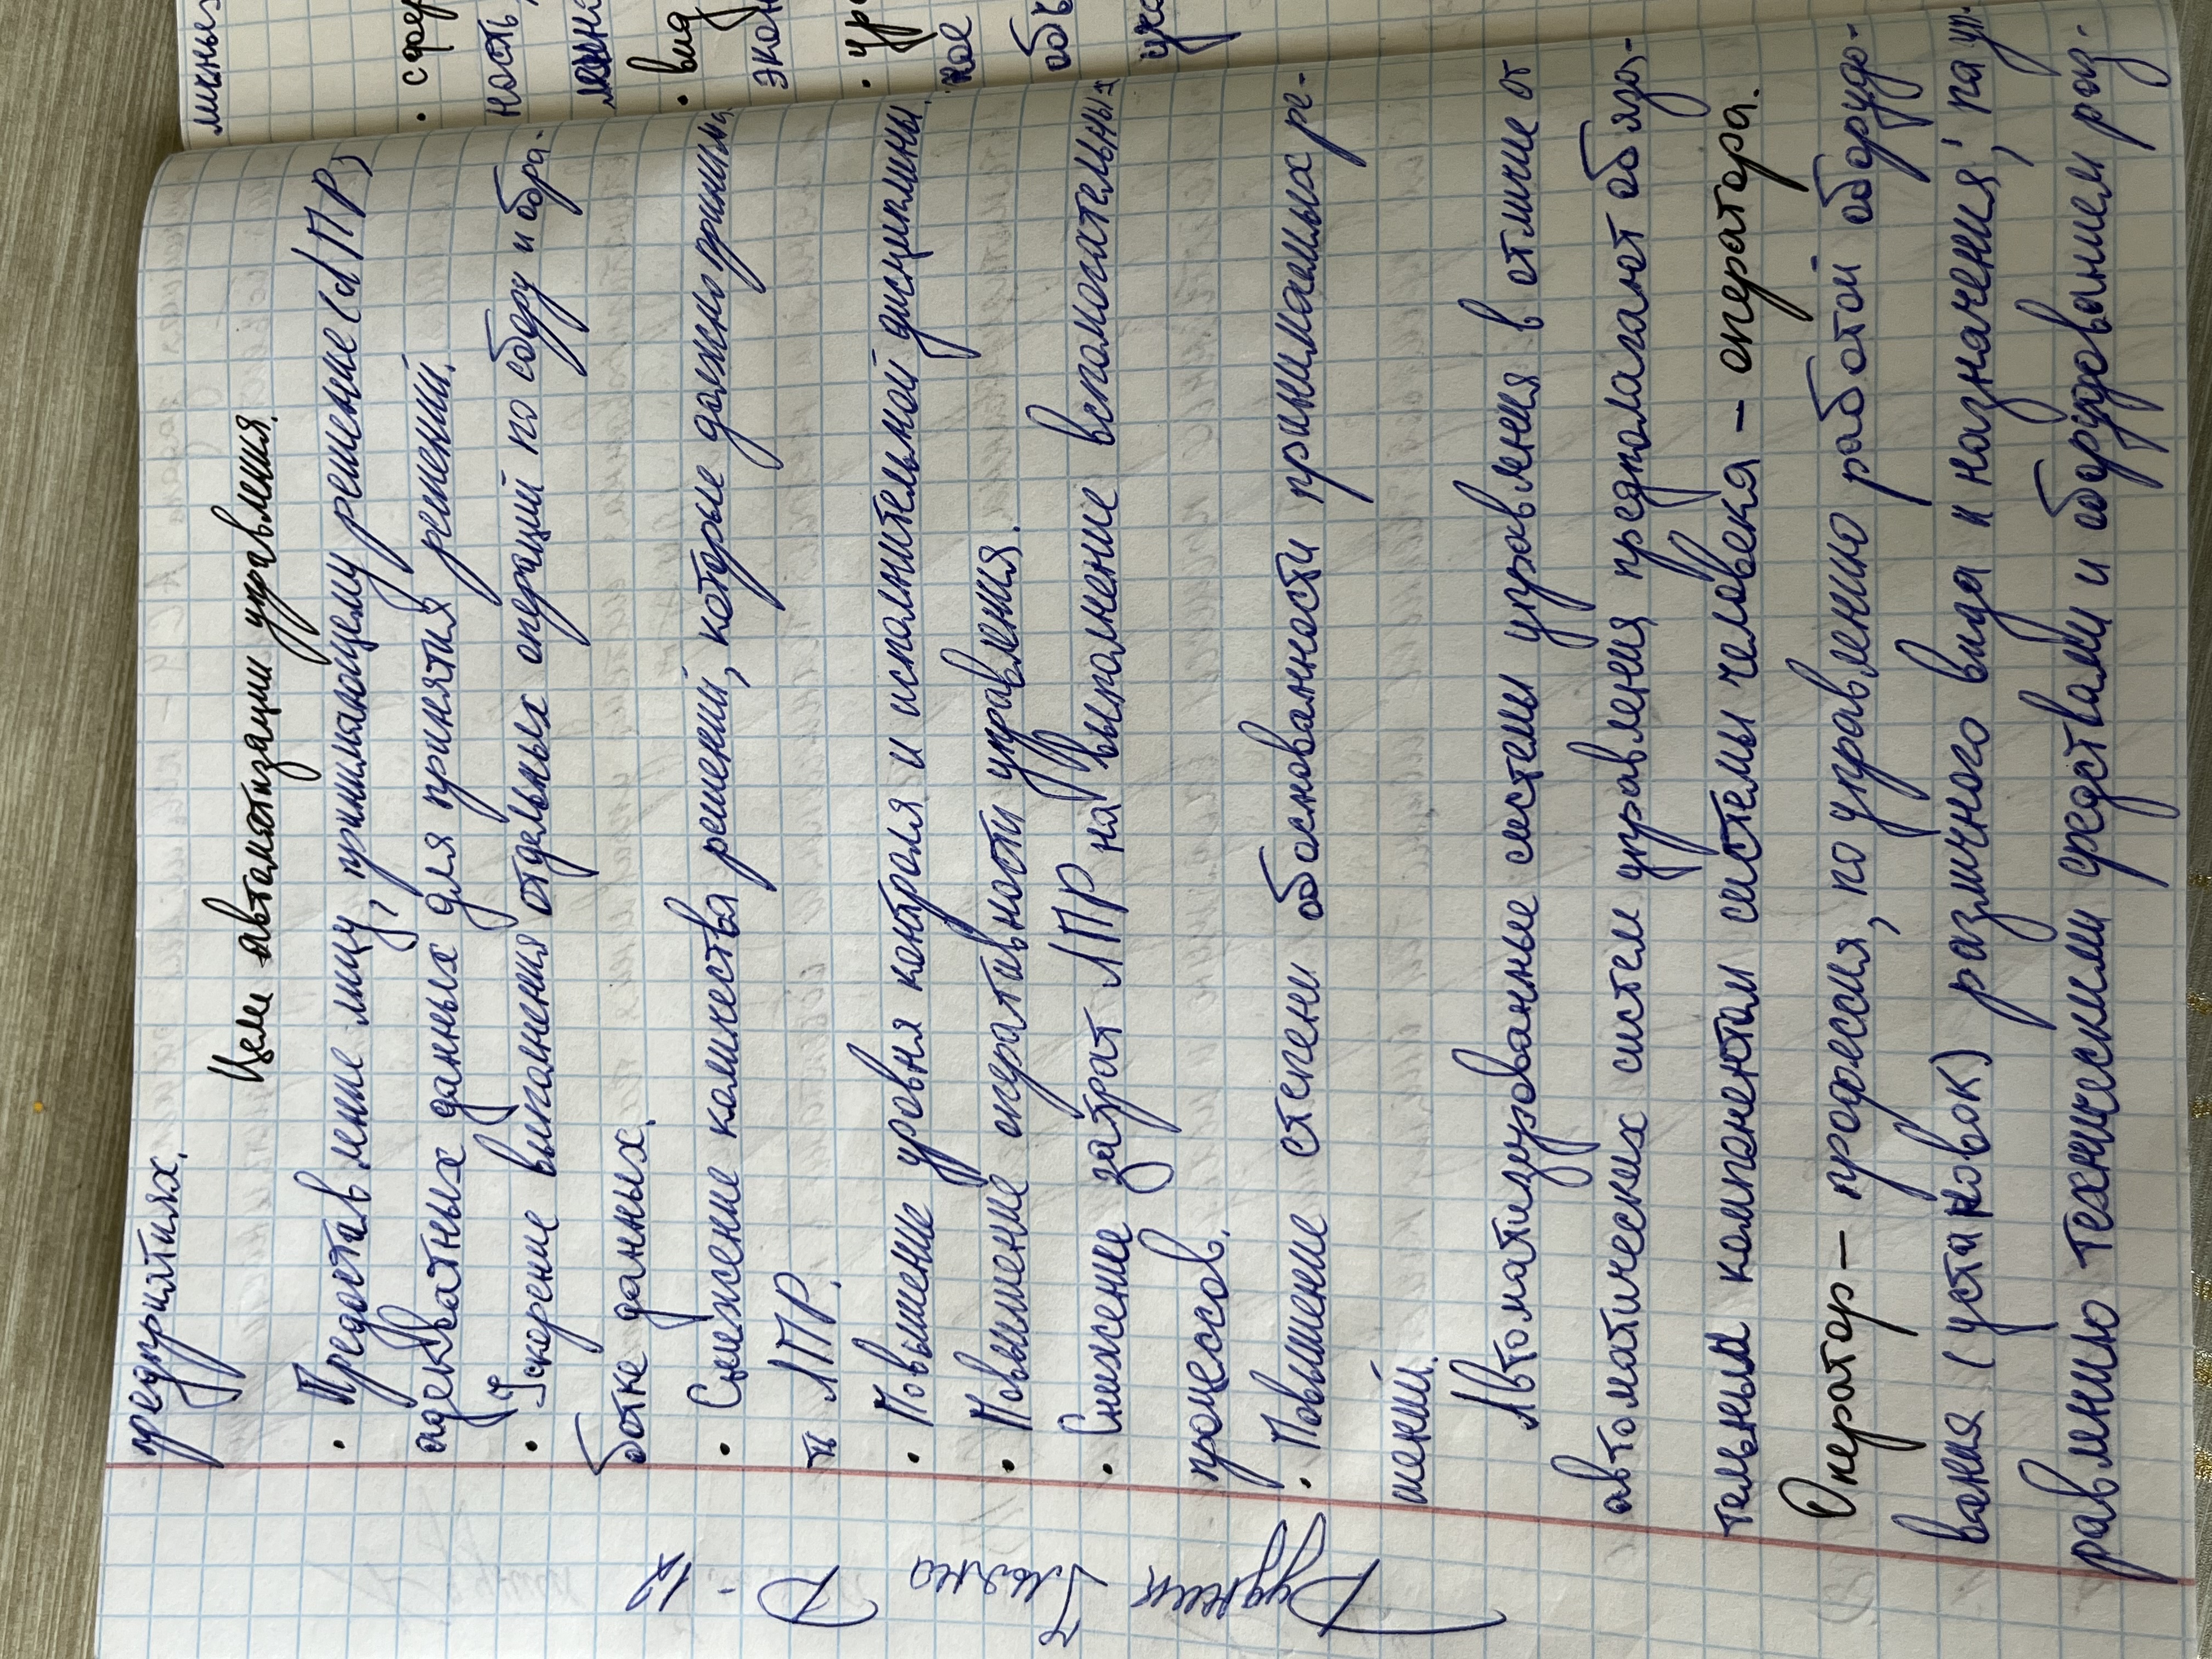 предприятиях.
Цели автоматизации управления.
• Предоставление лицу, принимающему решение (ЛПР)
адекватных данных для принятия решений.
• Ускорение выполнения отдельных операций по сбору и обра-
ботке данных.
• Снижение количества решений, которые должно принима-
ть ЛПР.
• Повышение уровня контроля и исполнительной дисциплины.
• Повышение оперативности управления.
• Снижение затрат ЛПР на выполнение вспомогательных
процессов.
• Повышение степени обоснованности принимаемых ре-
шений.
Автоматизированные системы управления в отличие от
автоматических систем управления предполагают обяза-
тельным компонентом системы человека – оператора.
Оператор – профессия, по управлению работой оборудо-
вания (установок) различного вида и назначения; по уп-
равлению техническими средствами и оборудованием раз-
личных
• сфер
ность,
• вид
экон
• ур
ное
объ
Р - 12